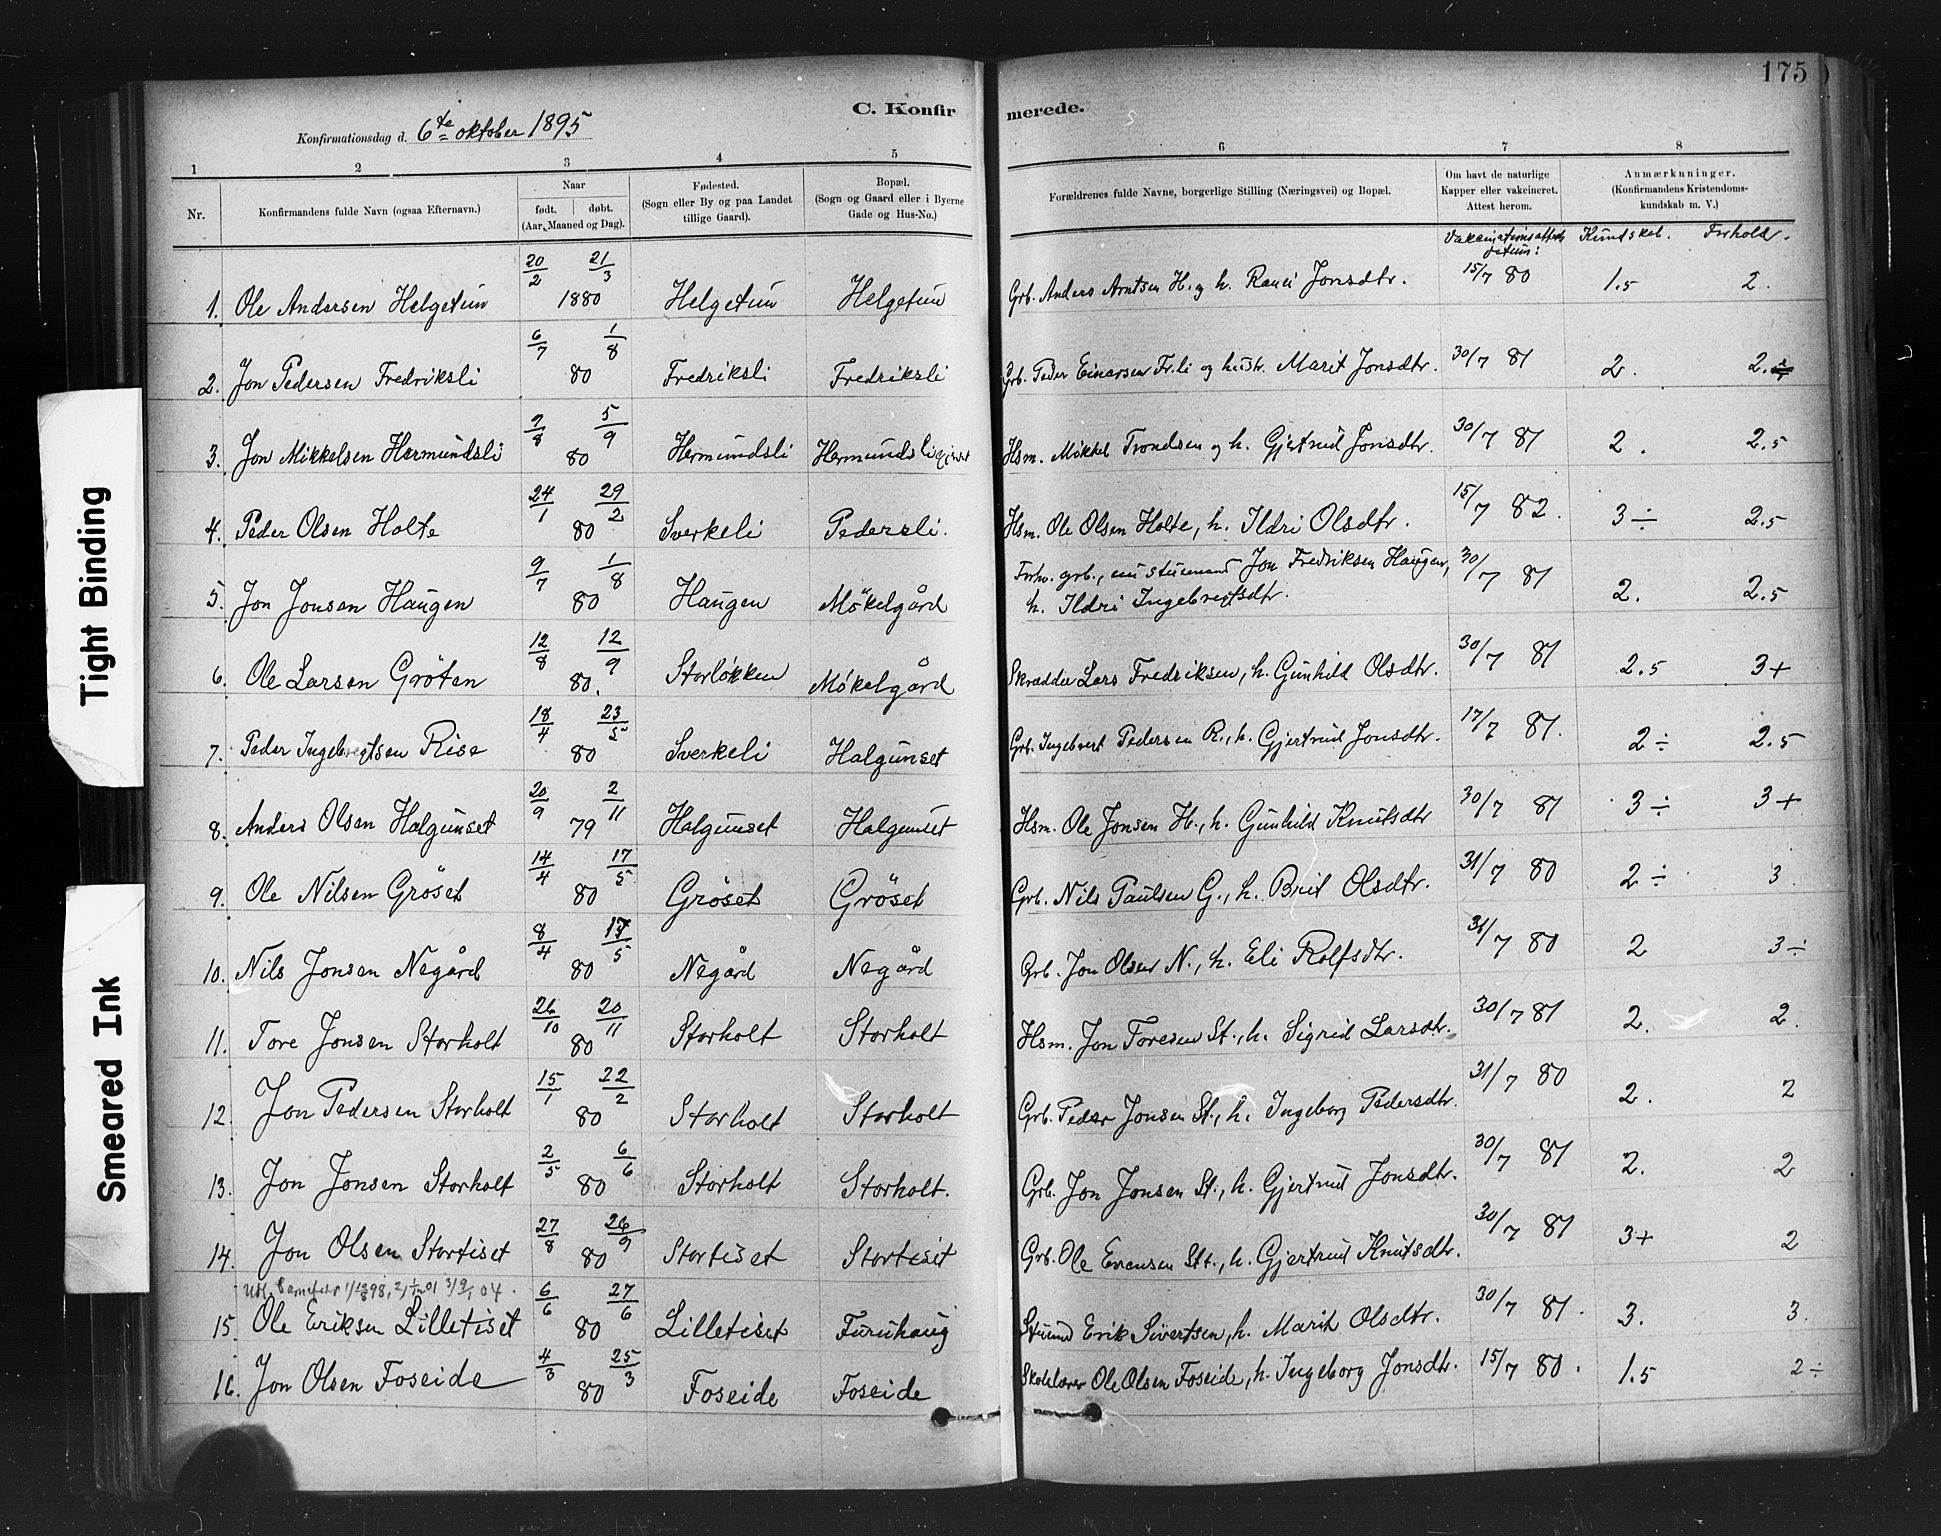 175
C. Konfirmerede.
Konfirmationsdag d. 6te oktober 1895
1 2 3 4 5 6 7 8
Nr. | Konfirmandens fulde Navn (ogsaa Efternavn.) | Naar født. døbt. (Aar, Maaned og Dag). | Fødested. (Sogn eller By og paa Landet tillige Gaard). | Bopæl. (Sogn og Gaard eller i Byerne Gade og Hus-No.) | Forældrenes fulde Navne, borgerlige Stilling (Næringsvei) og Bopæl. | Om havt de naturlige Kapper eller vakcineret. Attest herom. | Anmærkninger. (Konfirmandens Kristendomskundskab m. V.)
Vakcinationsattests datum: Kundskab. Forhold.
1. Ole Andersen Helgetun 20/2 21/3 1880 Helgetun Helgetun Grb. Anders Arntsen H. og h. Ranei Jonsdtr. 15/7 80 1.5 2.
2. Jon Pedersen Fredriksli 6/7 1/8 80 Fredriksli Fredriksli Grb. Peder Einarsen Fr.li og hustr. Marit Jonsdtr. 30/7 81 2. 2.
3. Jon Mikkelsen Hermundsli 7/8 5/9 80 Hermundsli Hermundsli Hsm. Mikkel Trondsen og h. Gjertrud Jonsdtr. 30/7 81 2. 2.5
4. Peder Olsen Holte 24/1 29/2 80 Sverkeli Pedersli. Hsm. Ole Olsen Holte, h. Ildri Olsdtr. 15/7 82. 3÷ 2.5
5. Jon Jonsen Haugen 9/7 1/8 80 Haugen Mökelgård Forhv. grb., nu stuemand Jon Fredriksen Haugen, h. Ildri Ingebregtsdtr. 30/7 81 2. 2.5
6. Ole Larsen Gröten 12/8 12/9 80. Storløkken Mökelgård Skrædder Lars Fredriksen, h. Gunhild Olsdtr. 30/7 81 2.5 3+
7. Peder Ingebregtsen Rise 18/4 23/5 80 Sverkeli Halgunset Grb. Ingebrert Pedersen R., h. Gjertrud Jonsdtr. 17/7 81. 2÷ 2.5
8. Anders Olsen Halgunset 20/9 2/11 79 Halgunset Halgunset Hsm. Ole Jonsen H., h. Gunhild Knutsdtr 30/7 81 3÷ 3+
9. Ole Nilsen Gröset 14/4 17/5 80 Gröset Gröset Grb. Nils Paulsen G., h. Brit Olsdtr. 31/7 80 2÷ 3
10. Nils Jonsen Negård 8/4 17/5 80 Negård Negård Grb. Jon Olsen N., h. Eli Rolfsdtr. 31/7 80 2 3÷
11. Tore Jonsen Storholt 26/10 20/11 80 Storholt Storholt Hsm. Jon Toresen St., h. Sigrid Larsdtr. 30/7 81 2. 2.
12. Jon Pedersen Storholt 15/1 22/2 80 Storholt Storholt Grb. Peder Jonsen St., h. Ingeborg Pedersdtr. 31/7 80 2. 2
13. Jon Jonsen Storholt 2/5 6/6 80 Storholt Storholt. Grb. Jon Jonsen St., h. Gjertrud Jonsdtr. 30/7 81 2. 2
14. Jon Olsen Stortiset 27/8 26/9 80 Stortiset Stortiset Grb. Ole Evensen Stt., h. Gjertrud Knutsdtr. 30/7 81 3+ 2
15. Ole Eriksen Lilletiset 6/6 27/6 80 Lilletiset Furuhaug Stuemd Erik Sivertsen, h. Marit Olsdtr. 30/7 81. 3. 3.
16. Jon Olsen Foseide 4/3 25/3 80 Foseide Foseide Skolelærer Ole Olsen Foseide, h. Ingeborg Jonsdtr. 15/7 80. 1.5 2÷
Tight Binding
Smeared Ink